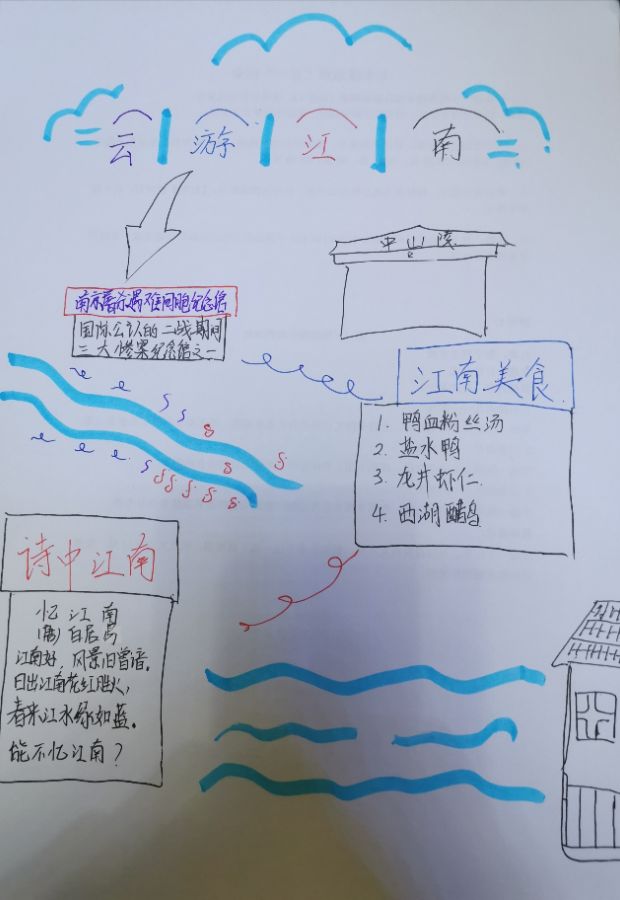 云 游 江 南
中山陵
南京屠杀遇难同胞纪念馆
国际公认的二战期间
三大惨案纪念馆之一
江南美食
1. 鸭血粉丝汤
2. 盐水鸭
3. 龙井虾仁
4. 西湖醋鸡
诗中江南
忆江南
(唐)白居易
江南好,风景旧曾谙。
日出江南花红胜火,
春来江水绿如蓝。
能不忆江南?